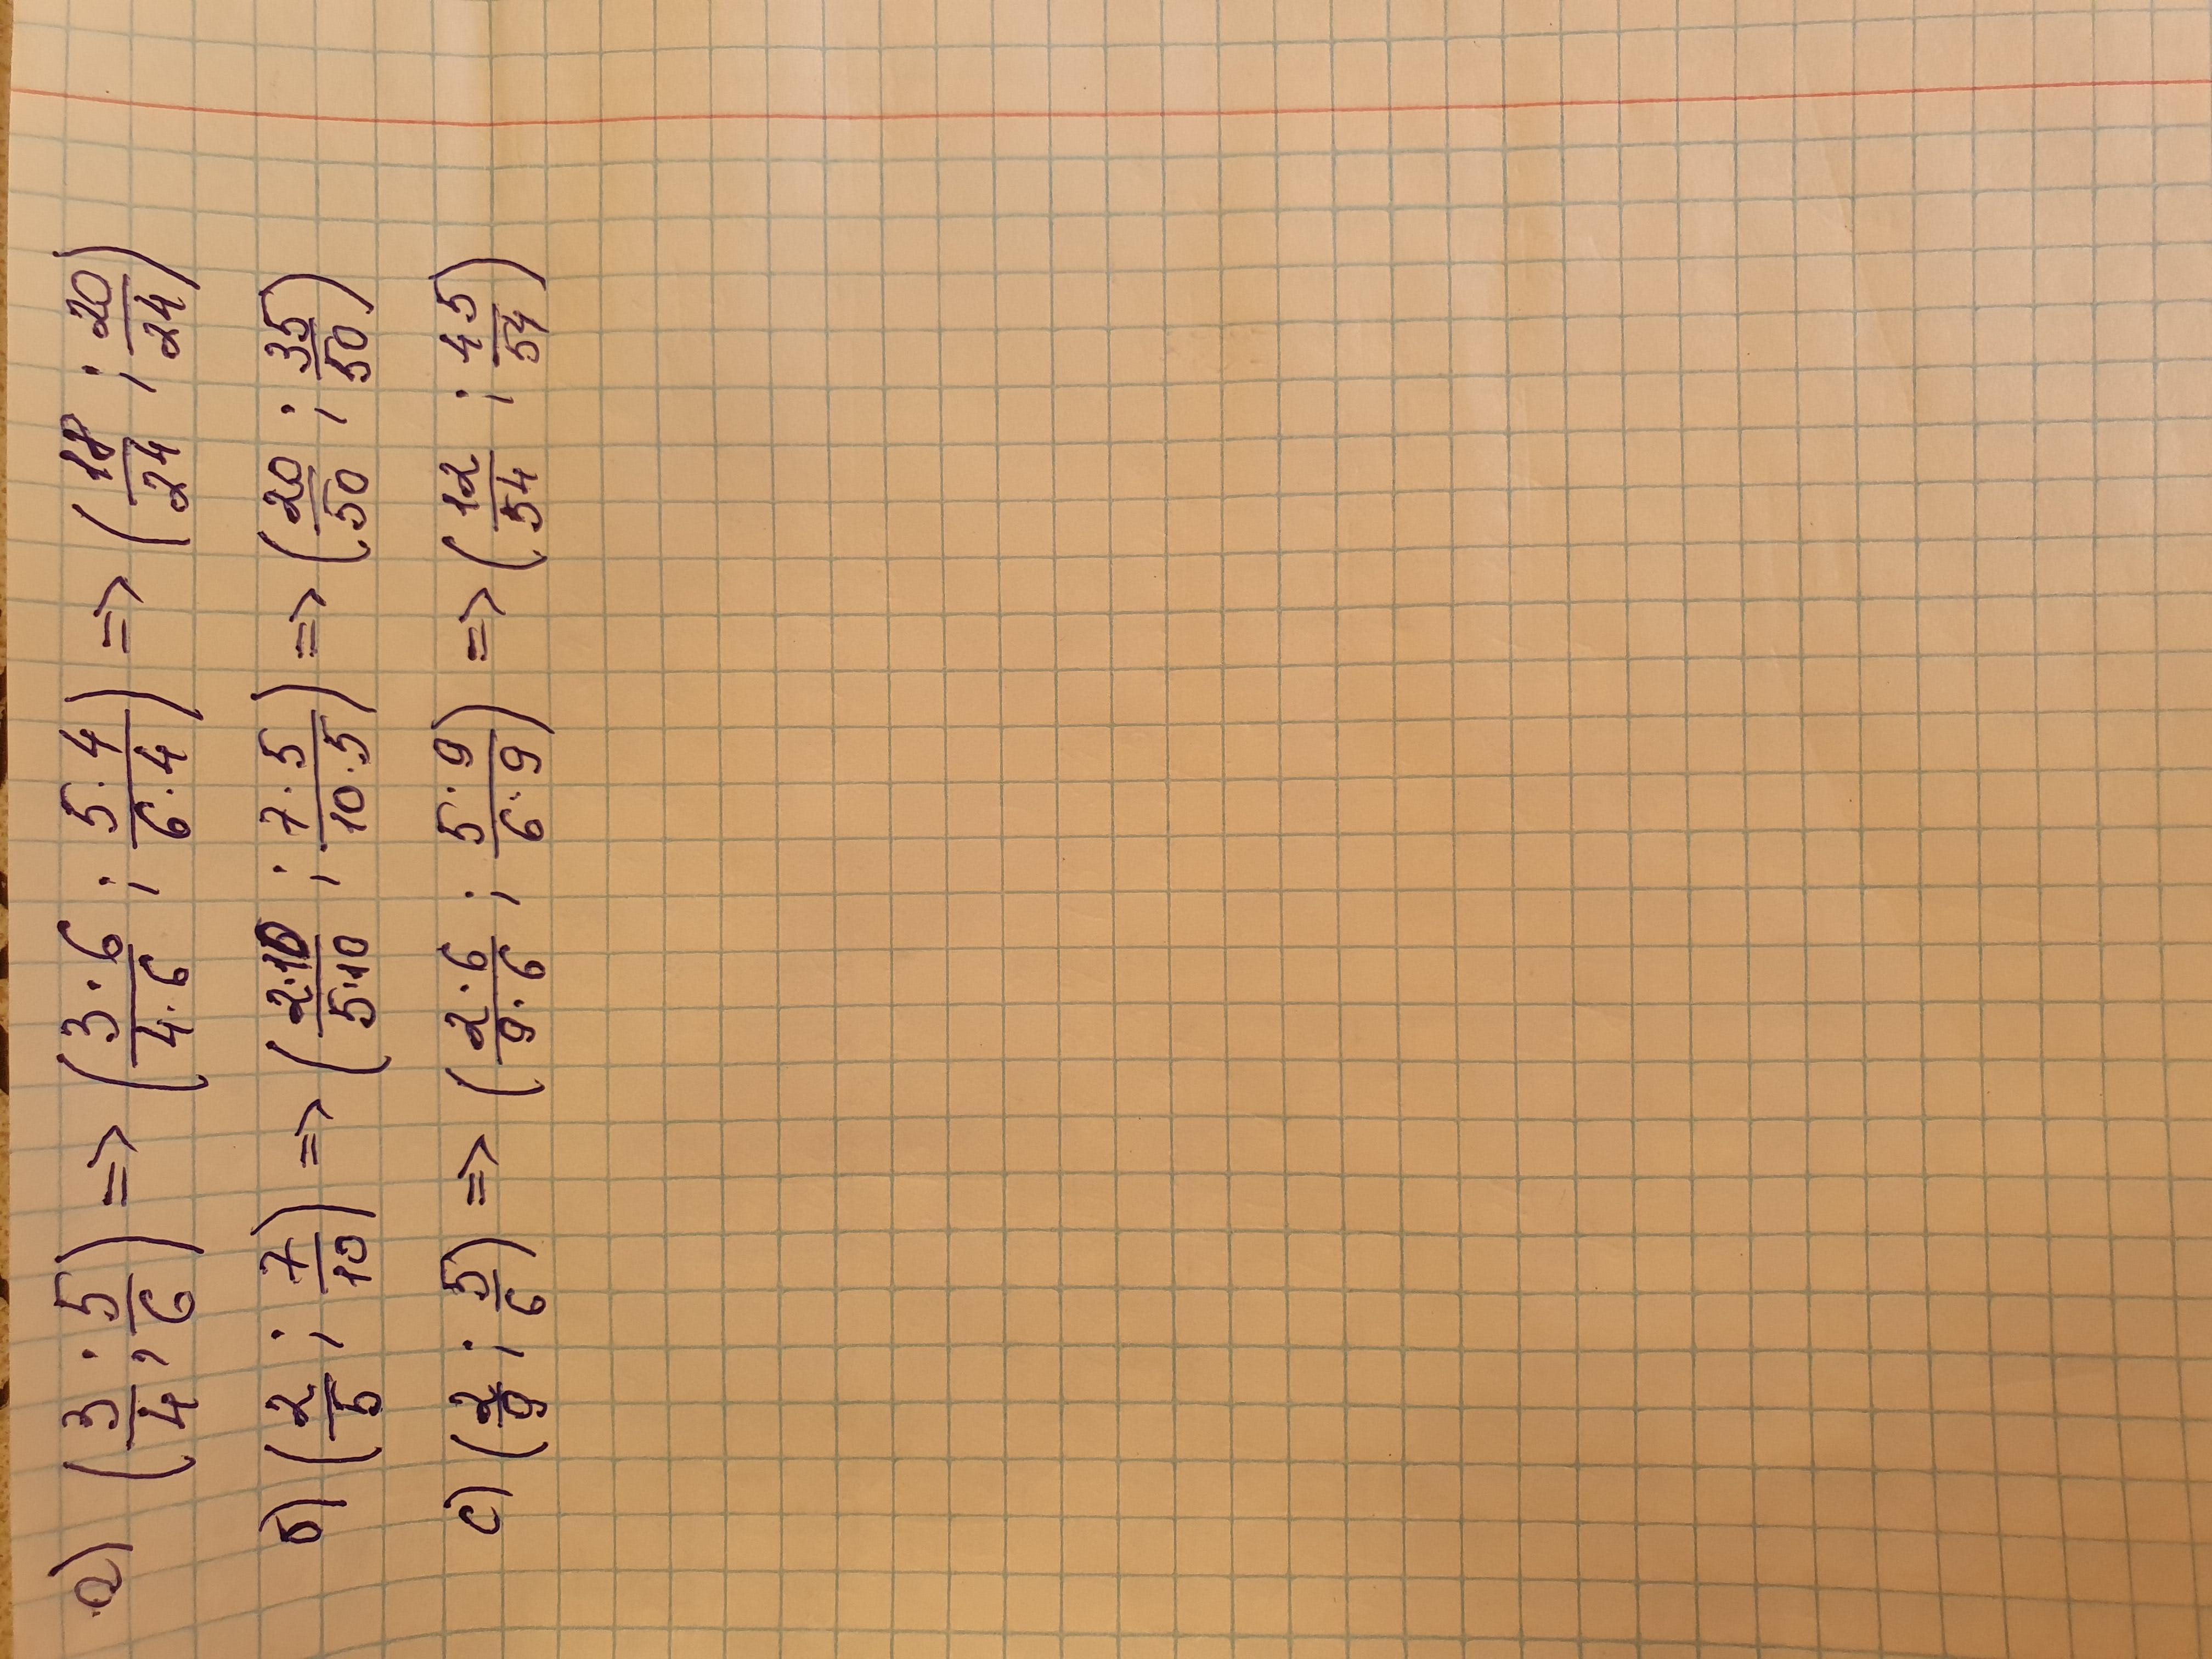 a) (3/4 ; 5/6) => (3·6/4·6 ; 5·4/6·4) => (18/24 ; 20/24)
б) (2/5 ; 7/10) => (2·10/5·10 ; 7·5/10·5) => (20/50 ; 35/50)
c) (2/9 ; 5/6) => (2·6/9·6 ; 5·9/6·9) => (12/54 ; 45/54)